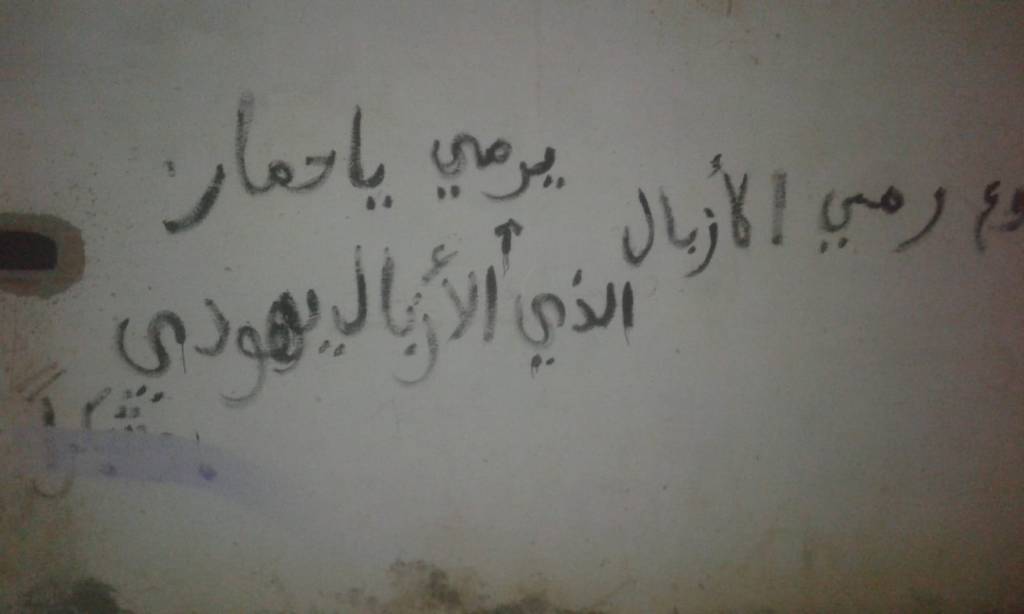 رمي الأزبال
يرمي ياحمار
الذي الأزبال يهودي